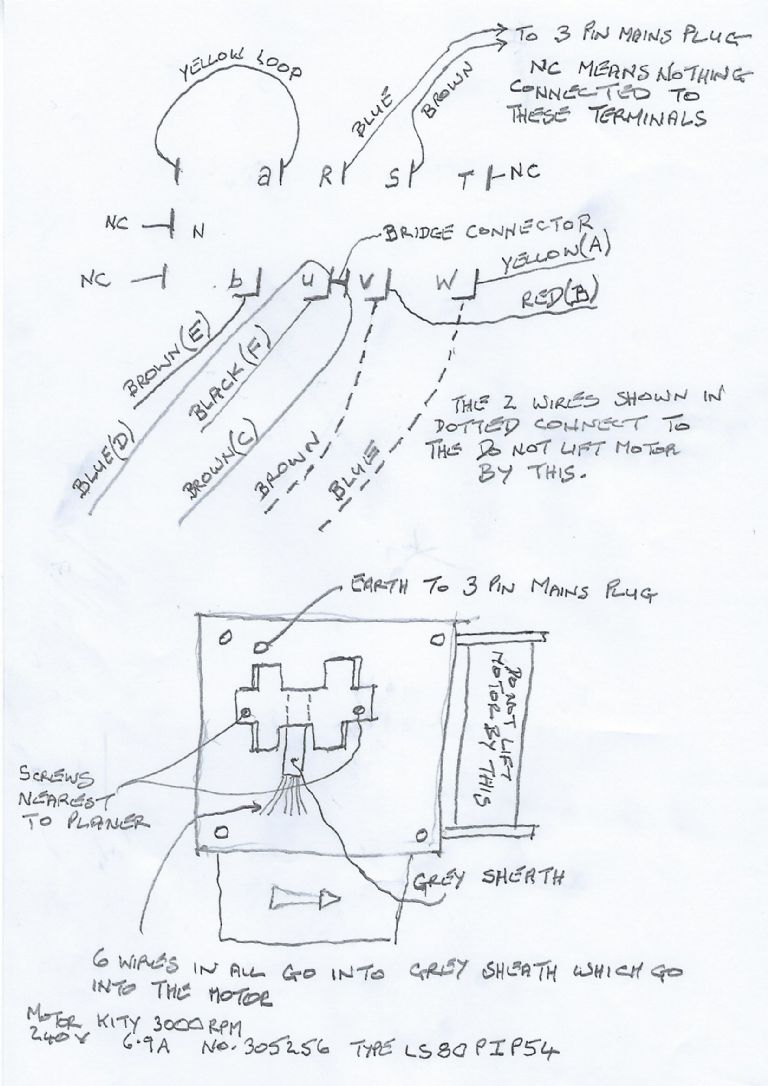 TO 3 PIN MAINS PLUG
NC MEANS NOTHING
CONNECTED TO
THESE TERMINALS
YELLOW LOOP
BLUE
BROWN
a
R
S
T
NC
NC
N
BRIDGE CONNECTOR
YELLOW(A)
NC
b
u
v
W
RED(B)
BROWN(E)
BLACK(F)
BLUE(D)
BROWN(C)
BROWN
BLUE
THE 2 WIRES SHOWN IN
DOTTED CONNECT TO
THE DO NOT LIFT MOTOR
BY THIS.
EARTH TO 3 PIN MAINS PLUG
DO NOT LIFT
MOTOR BY THIS
SCREWS
NEAREST
TO PLANER
GREY SHEATH
6 WIRES IN ALL GO INTO GREY SHEATH WHICH GO
INTO THE MOTOR
MOTOR KITY 3000RPM
240V 6.9A NO.305256 TYPE LS80PIP54